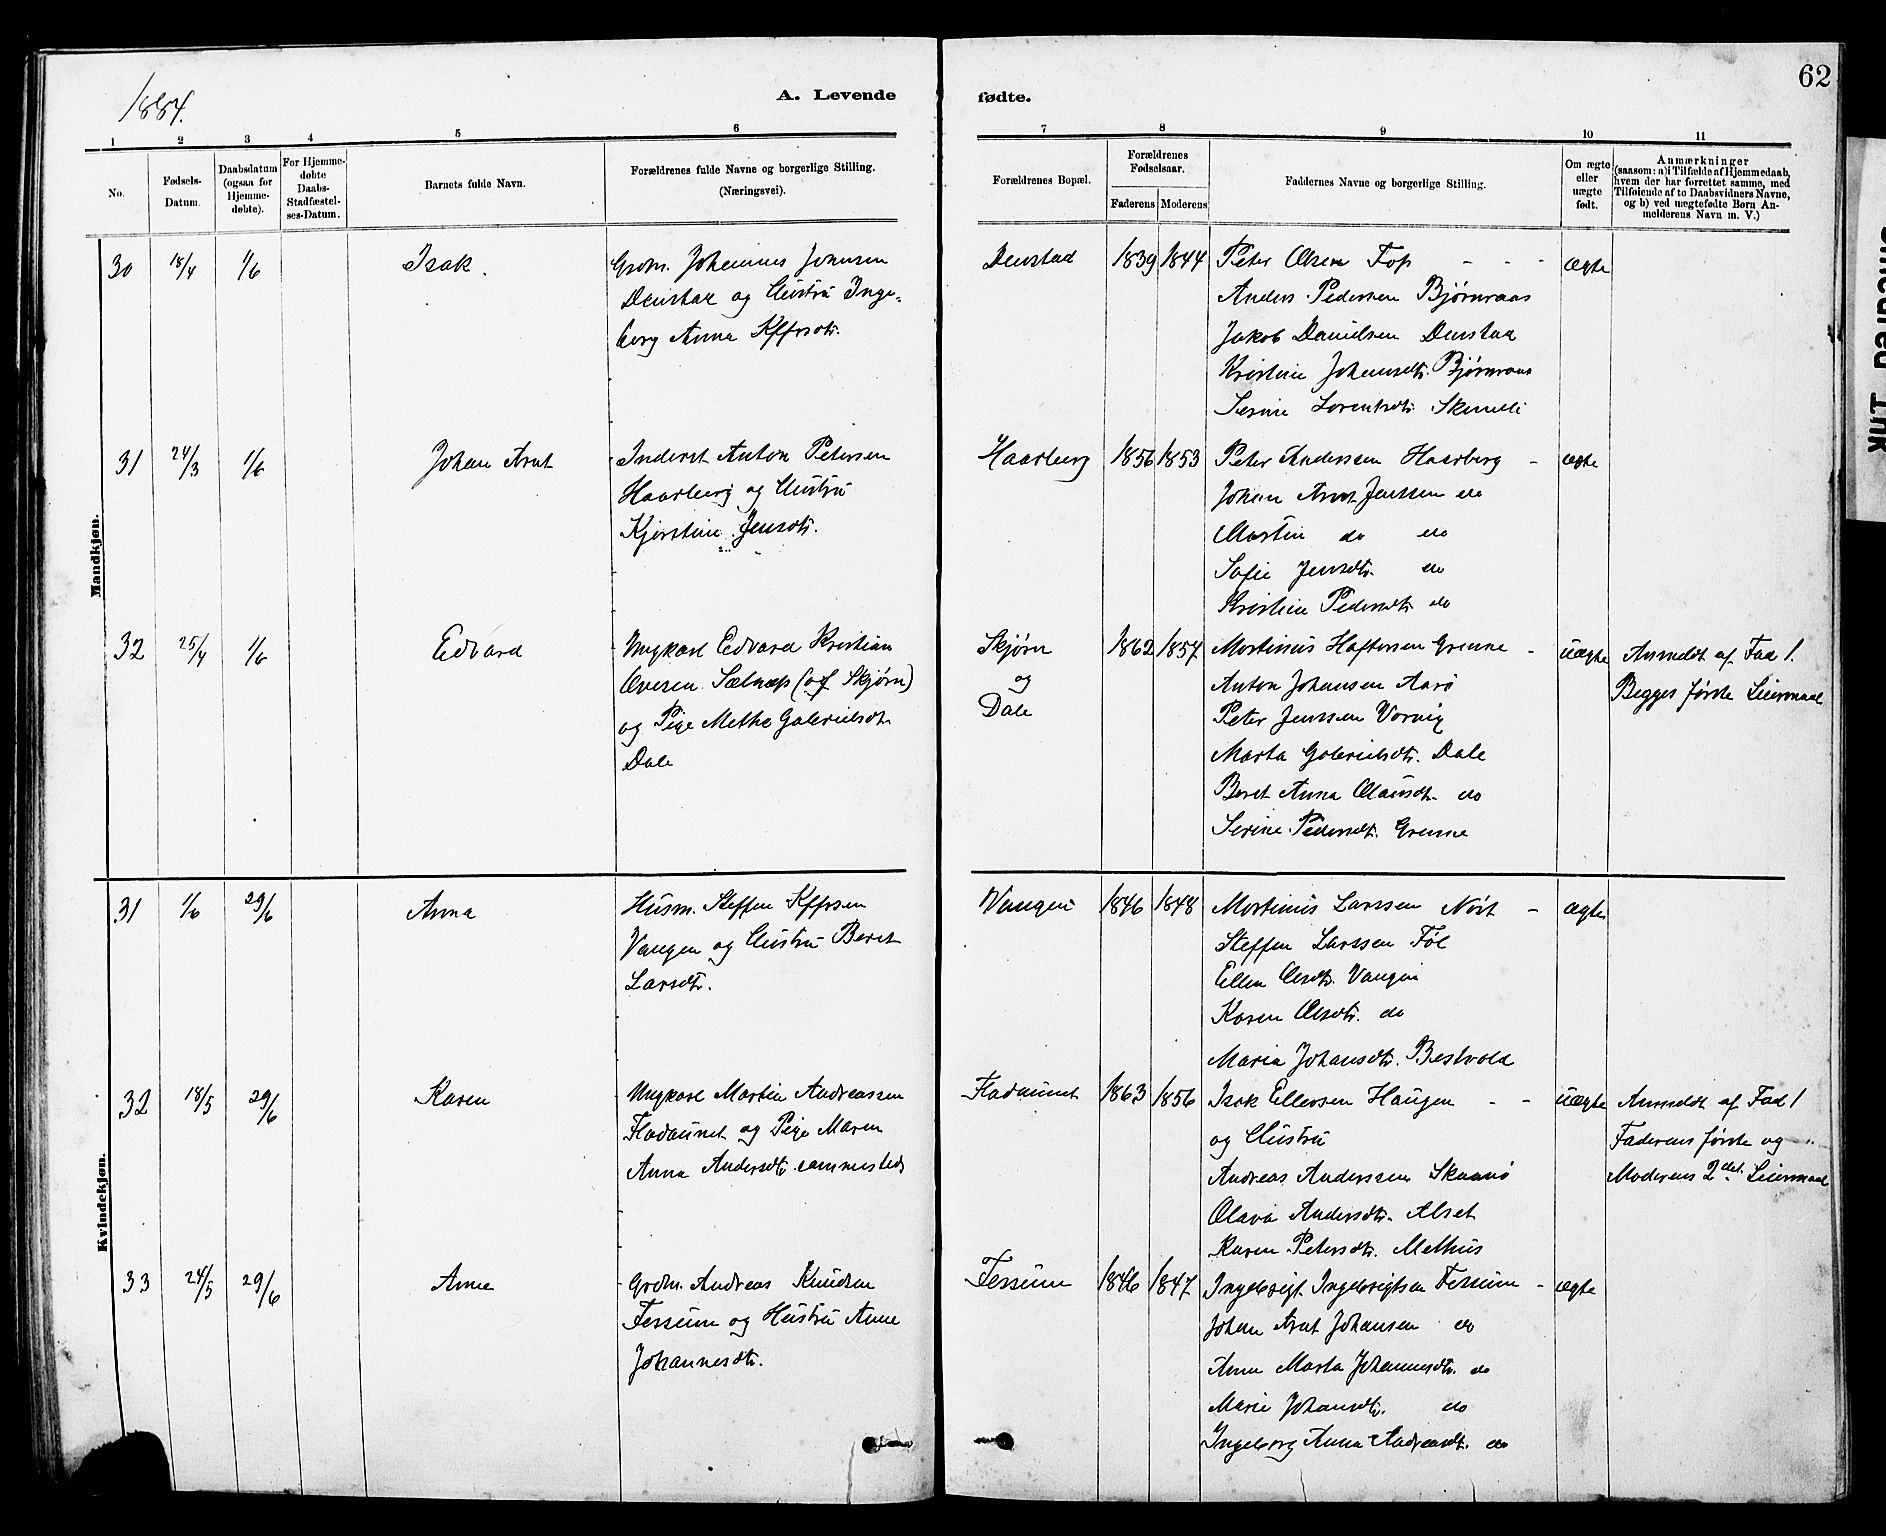 1884.
A. Levende fødte.
62
1 2 3 4 5 6 7 8 9 10 11
No.
Fødsels-Datum.
Daabsdatum (ogsaa for Hjemme-døbte).
For Hjemme-døbte Daabs-Stadfæstel-ses-Datum.
Barnets fulde Navn.
Forældrenes fulde Navne og borgerlige Stilling. (Næringsvei).
Forældrenes Bopæl.
Forældrenes Fødselsaar.
Faderens Moderens
Faddernes Navne og borgerlige Stilling.
Om ægte eller uægte født.
Anmærkninger
(saasom: a) i Tilfælde af Hjemmedaab,
hvem der har forrettet samme, med
Tilføiende af to Daabsvidners Navne,
og b) ved uægtefødte Børn An-
melderens Navn m. V.)
Mandkjøn.
30 18/4 1/6 Isak.
Grdm. Johannes Jonssen
Denstad og Hustru Inge-
borg Anna Kffrsdtr.
Denstad 1839 1844
Peter Olsen Fop - - - ægte
Anders Pedersen Bjørnaas
Jakob Danielsen Denstad
Kristine Johansdtr. Bjørnaas
Serine Lorentsdtr.
31 24/3 1/6 Johan Arnt
Inderst Anton Petersen
Haarberg og Hustru
Kjerstine Jensdtr.
Haarberg 1856 1853
Peter Anderssen Haarberg - ægte
Johan Arnt Jenssen do
Martin do do
Sofie Jensdtr. do
Kristine Pedersdtr. do
32 25/4 1/6 Edvard
Ungkarl Edvard Kristian
Ovesen Sælnæs (af Skjørn)
og Pige Methe Gabrielsdtr.
Dale
Skjørn
og
Dale
1862 1857
Mortinus Haftorsen Grenne - uægte
Anton Johansen Aarø
Peter Jenssen Vorvig
Marta Gabrielsdtr. Dale
Beret Anna Olausdtr. do
Serine Pedersdtr. Grenne
Anmeldt af Fad 1.
Begges første Leiermaal
Kvindekjøn.
31 1/6 29/6 Anna
Husm. Steffen Kffrsen
Vangen og Hustru Beret
Larsdtr.
Vangen 1846 1848
Mortinus Larssen - ægte
Steffen Larssen
Ellen Olsdtr. Vangen
Karen Olsdtr. do
Maria Johansdtr. Bestvold
32 18/5 29/6 Karen
Ungkarl Martin Andreassen
Fladaunet og Pige Maren
Anna Andersdtr. sammesteds
Fladaunet 1863 1856
Isak Ellevsen Haugen - - uægte
og Hustru
Andreas Anderssen
Olava Andersdtr. Alset
Karen Petersdtr. Melhus
Anmeldt af Fad 1
Faderens første og
Moderens 2det. Leiermaal
33 24/5 29/6 Anne
Grdm. Andreas Knudsen
Fessum og Hustru Anne
Johannesdtr.
Fessum 1846 1847
Ingebrigt Ingebrigtsen Fessum - ægte
Johan Arnt Johansen do
Anne Marta Johannesdtr. do
Marie Johansdtr. do
Ingeborg Anna Andreasdtr. do